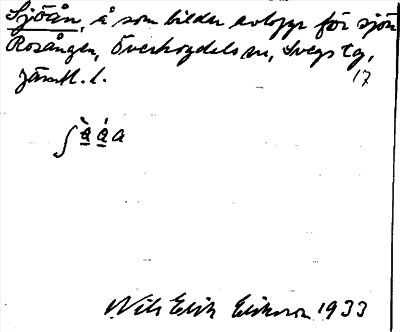 Sjöån, å som bildar avlopp för sjön
Rosången, Överhogdals sn, Svegs tg,
Jämtl. l. 17
Nils Erik Eriksson 1933